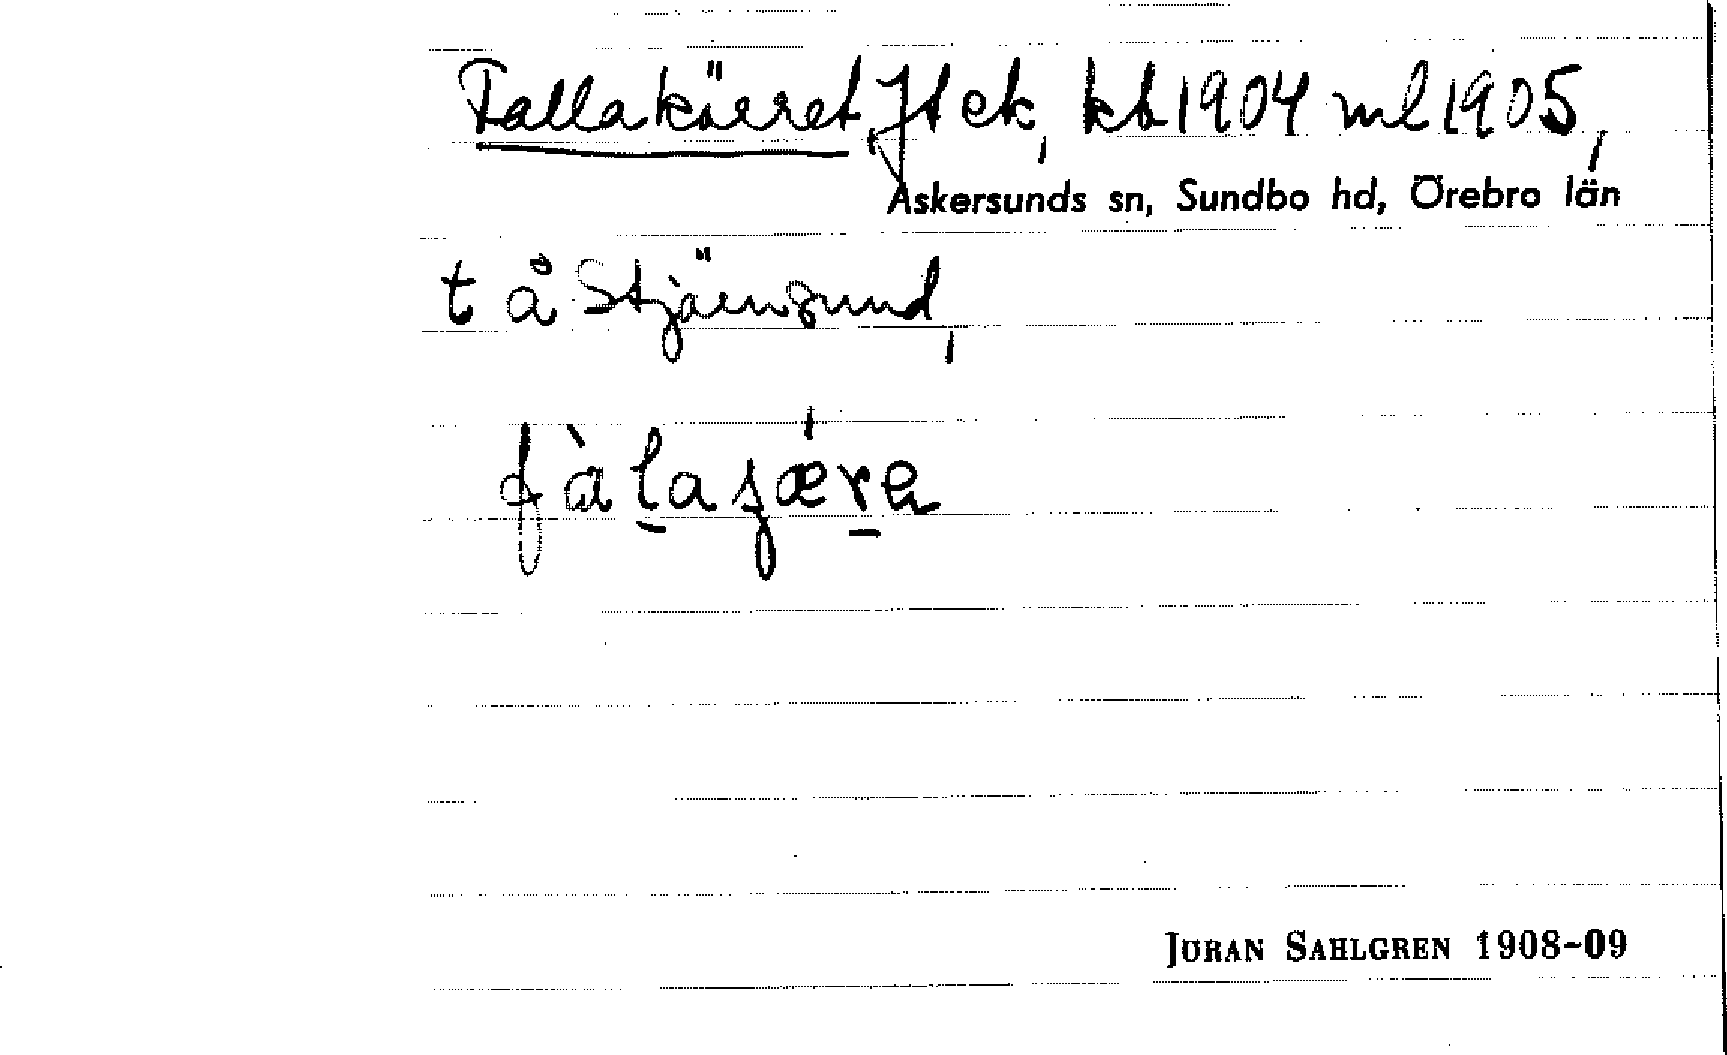 Fallakärret, Jt ek, kb 1904 ml 1905,
Askersunds sn, Sundbo hd, Örebro län
t å Stjärnsund,
JÖRAN SAHLGREN 1908-09